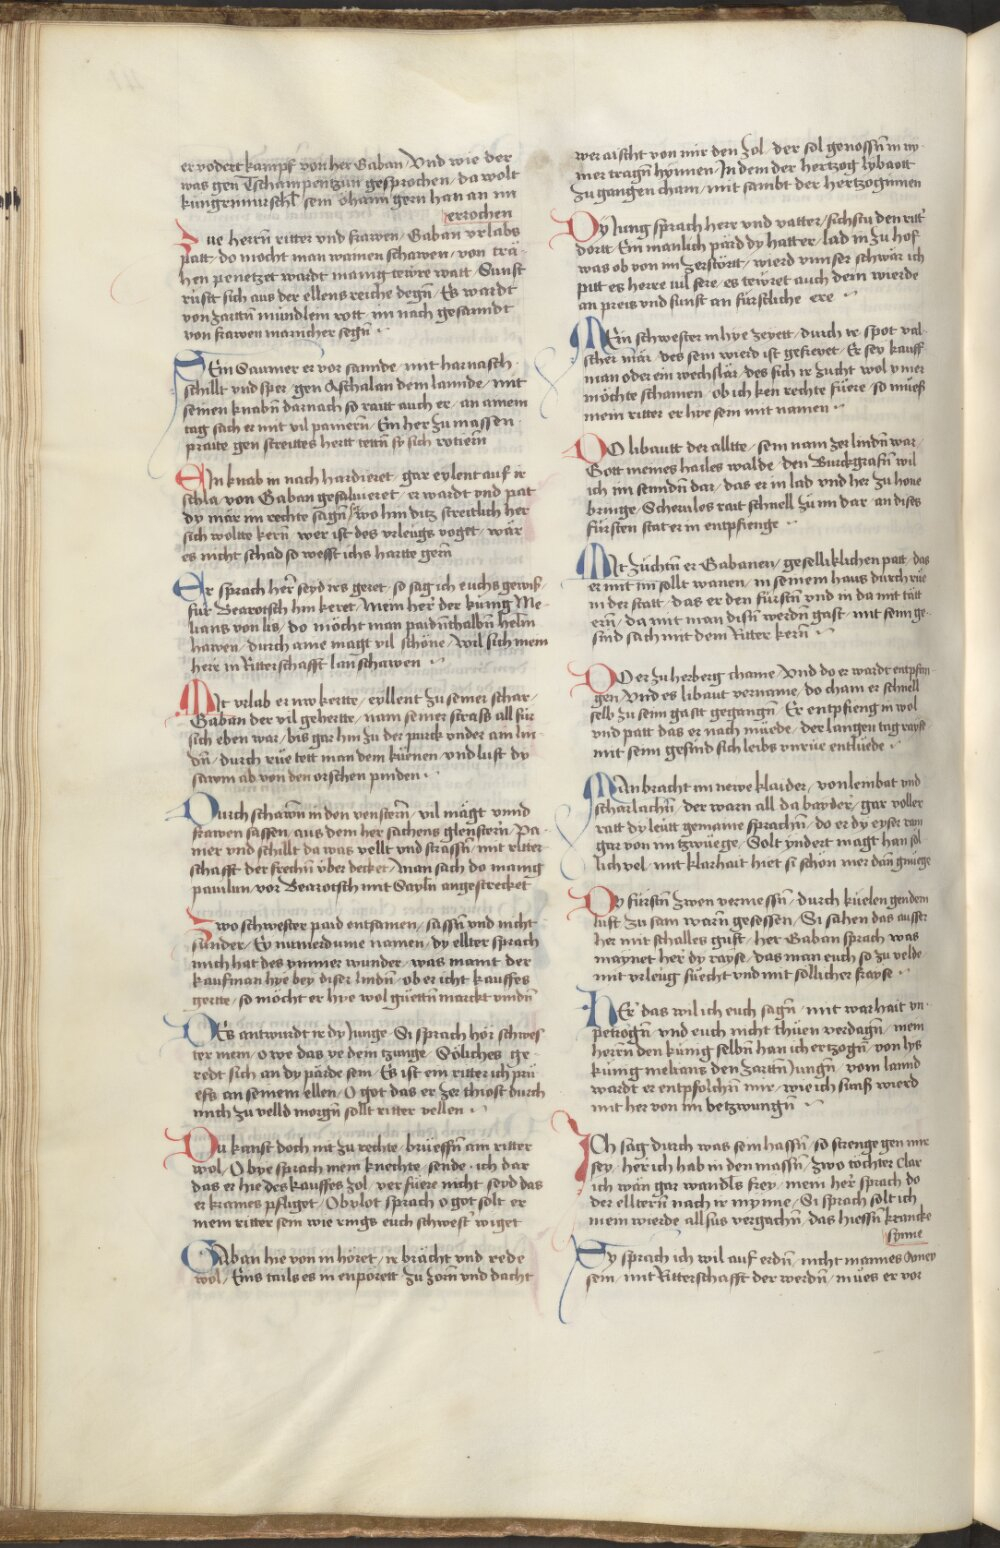 er vodert kampf von her Gaban / Vnd wie der
was gen Tschampentzun gesprochen / da wolt
kungrimurschl sein öhaim gern han an im
errochen
Zue herrñ ritter vnd frawen / Gaban vrlabs
patt / do mocht man wainen schawen / von trä-
hen penetzet wardt manig tewre watt / Sunst
rüstt sich aus der ellens reiche degñ / Es wardt
von zarttñ mündlein rott / im nach gesanndt
von frawen manicher segñ
Sein Saumer er vor sannde / mit harnasch
schillt vnd sper / gen Aschalan dem lannde / mit
seinen knabñ darnach so raitt auch er / an ainem
tag sach er mit vil panierñ / Ein her zu massen
praite gen streittes hertt tettñ sy sich rotierñ
Ein knab in nach hardieret / gar eylent auf ir
schla / von Gaban gesalvieret / er wardt vnd pat
dy mär im rechte sagñ / wo hin ditz streitlich her
sich woltte kerñ / wer ist des vrleugs vogtt / wär
es nicht schad so wesst ichs hartte gerñ
Er sprach her seyd irs geret / so sag ich euchs gewiß /
für Bearotsch hin keret / Mein her der kunig Me-
lians von lis / do möcht man paidñthalbñ helm
hawen / durch aine magt vil schöne / wil sich mein
here in Ritterschafft lan schawen
Mit vrlab er wo kertte / eyllent zu seiner schar /
Gaban der vil gehertte / nam seiner straß all für
sich eben war / bis gar hin zu der purck vnder ain lin-
dñ / durch rüe tett man dem küenen / vnd lust dy
sawm ab von den orschen pinden
Durch schawñ in den venstern / vil mägt vnnd
frawen sassen / aus dem her sachens glenstern / Pa-
nier vnd schillt da was vellt vnd strassñ / mit ritter
schafft der frechñ über decket / Man sach do manig
pauilun / vor Bearotsch mit Sayln angestrecket
Zwo schwester paid entsamen / sassñ vnd nicht
sunder / Ey numerdume namen / dy ellter sprach
mich hat des ymmer wunder / was maint der
kaufman hye bey diser lindñ / ob er icht kauffes
gertte / so möcht er hye wol güettñ marckt vindñ
Des antwurdt ir dy Junge / Si sprach hör schwes
ter mein / o we das ye dein tzunge / Söliches ge-
redt sich an dy pärde sein / Es ist ein ritter ich prü
efs an seinem ellen / O got das er zer thiost durch
mich zu velld morgñ sollt ritter vellen
Du kanst doch nit zu rechte / brüeffñ am ritter
wol / O bye sprach mein knechte / sende ich dar
das er hie des kauffes zol / ver füere nicht seyd das
er krames pfliget / Obylot sprach o got solt er
mein ritter sein wie rings euch schwest' wiget
Gaban hie von in höret / ir brächt vnd rede
wol / Eins tails es in enporett / zu zorñ vnd dacht
wer aischt von mir den zol / der sol genossñ in ny-
mer tragñ hynnen / In dem der hertzog lybaott
zu gangen cham / mit sambt der hertzoginnen
Dy Jung sprach herr vnd vatter / sichstu den ritt'
dortt / Ein manlich pärd dy hatt er / lad in zu hof
was ob von im zerstörtt / wierd vnnser schwär ich
pitt es herre vil sere / es tewret auch dein wierde
an preis vnd sunst an fürstliche ere
Mein schwester in hye zeyett / durch ir spot val-
scher mär / des sein wierd ist gefreyet / Er sey kauff
man oder ein wechslär / des sich ir zucht wol ymer
möchte schamen / ob ich ken rechte füere / so müeß
mein ritter er hye sein mit namen
Do libautt der alltte / sein nam zer lindñ war
Gott meines hailes walde / den Burckgrafñ wil
ich im senndñ dar / das er in lad vnd her zu houe
bringe / Scherules rait schnell zü im dar / an dises
fürsten stat er in entpfienge
Mit züchtñ er Gabanen / geselliklichen patt / das
er mit im sollt wanen / in seinem haus durch rüe
in der statt / das er den fürstñ vnd in da mit tätt
erñ / da mit man disñ werdñ gast / mit seim ge-
sind sach mit dem Ritter kerñ
Do er zu herberg chame / Vnd do er wardt entpfan
gen / Vnd es libaut vername / do cham er schnell
selb zu seim gastt gegangñ / Er entpfieng in wol
vnd patt das er nach müede / der langen tag rayse
mit seim gesind sich leibs vnrüe entlüede
Man bracht im newe klaider / von lembat vnd
scharlachñ / der warn all da bayder / gar voller
ratt dy leütt gemaine sprachñ / do er dy eyser ram
gar von im tzwüege / Solt yndert magt han söl-
lich vel / mit klarhait hiet si schön mer dañ gnuege
Dy fürstñ zwen vermessñ / durch küelen gendem
luft / zu sam warñ gesessen / Si sahen das ausser
her mit schalles guft / her Gaban sprach was
maynet her dy rayse / das man euch so zu velde
mit vrleug süecht vnd mit sollicher frayse
Her das wil ich euch sagñ / mit warhait vn-
petrogñ / vnd euch nicht thüen verdagñ / mein
herrñ den künig selbñ han ich ertzogñ / von lys
kunig melians den zarttñ Jungñ / vom lannd
wardt er entpfolchñ mir / wie ich sunst wierd
mit her von im betzwungñ
Ich sag durch was sein hassñ / so strenge gen mir
sey / her ich hab in den massñ / zwo töchter clar
ich wän gar wandls frey / mein her sprach do
der elltern nach ir mynne / Si sprach solt ich
mein wierde all sus vergachñ / das hiessñ krancke
synne
Sy sprach ich wil auf erdñ / nicht mannes Omey
sein / mit Ritterschafft der werdñ / mües er vor